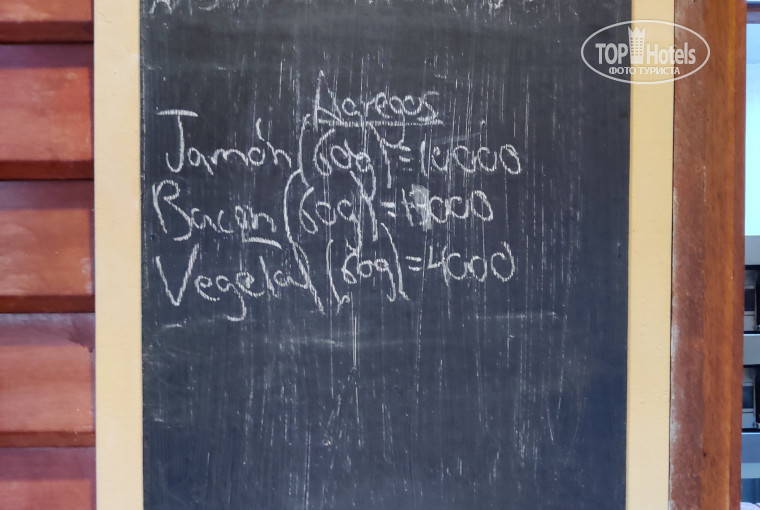 TOP Hotels
ФОТО ТУРИСТА
Agregos
Jamón (60g) = 10000
Bacon (60g) = 17000
Vegetal (60g) = 4000